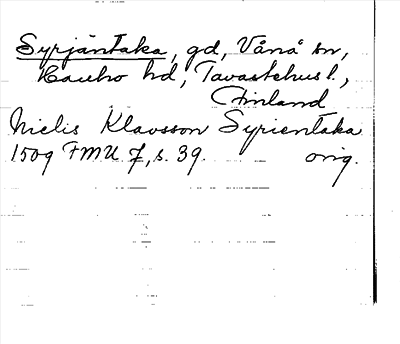 Syrjäntaka, gd, Vånå sn,
Hauho hd, Tavastehus l.,
Finland
Nielis Klavsson Syrientaka
1509 FMU 7, s. 39. orig.